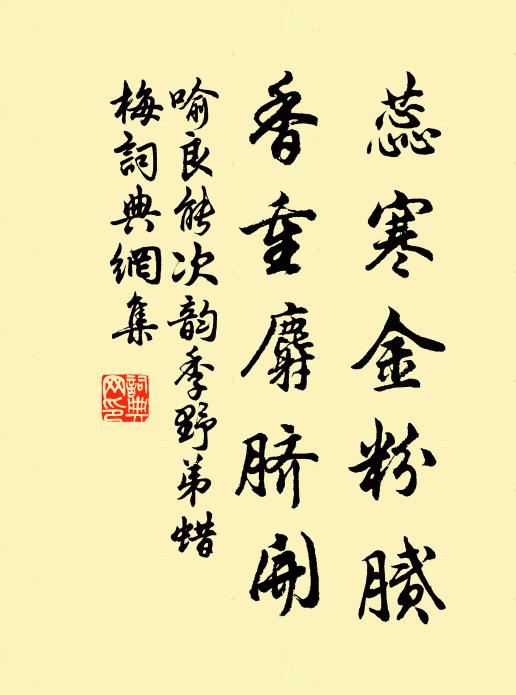 蕊寒金粉膩
香重麝脐開
喻良能次韵季野弟蜡
梅詞典網集
詞典
网印